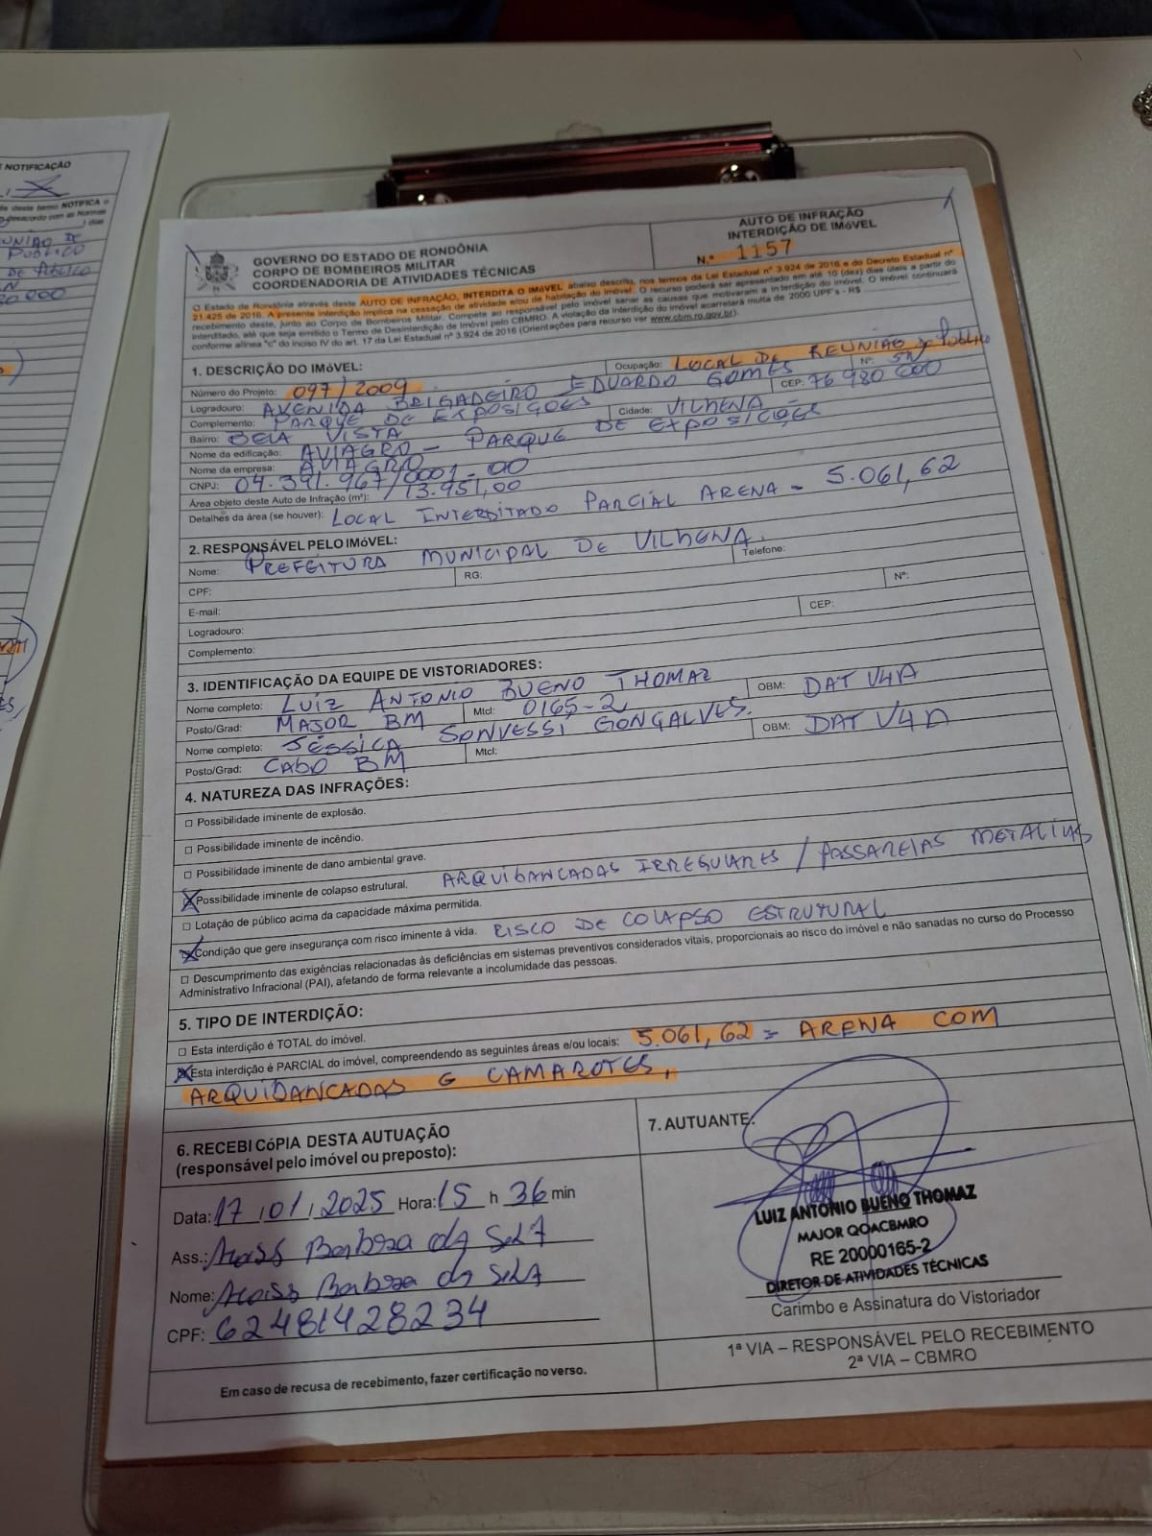 E NOTIFICAÇÃO
GOVERNO DO ESTADO DE RONDÔNIA
CORPO DE BOMBEIROS MILITAR
COORDENADORIA DE ATIVIDADES TÉCNICAS
AUTO DE INFRAÇÃO
INTERDIÇÃO DE IMóVEL
N.º 1157
O Estado de Rondônia através deste AUTO DE INFRAÇÃO, INTERDITA O IMóVEL abaixo descrito, nos termos da Lei Estadual nº 3.924 de 2016 e do Decreto Estadual nº
21.425 de 2016. A presente interdição implica na cessação de atividade e/ou de habitação do imóvel. O recurso poderá ser apresentado em até 10 (dez) dias úteis a partir do
recebimento deste, junto ao Corpo de Bombeiros Militar. Compete ao responsável pelo imóvel sanar as causas que motivaram a interdição do imóvel. O imóvel continuará
interditado, até que seja emitido o Termo de Desinterdição de Imóvel pelo CBMRO. A violação da interdição do imóvel acarretará multa de 2000 UPF's - R$
conforme alínea "c" do inciso IV do art. 17 da Lei Estadual nº 3.924 de 2016 (Orientações para recurso ver www.cbm.ro.gov.br).
1. DESCRIÇÃO DO IMóVEL:
Número do Projeto: 097/2009 Ocupação: LOCAL DE REUNIÃO de Público
Logradouro: AVENIDA BRIGADEIRO EDUARDO GOMES Nº: SN
Complemento: PARQUE DE EXPOSIÇÕES CEP: 76 980 000
Bairro: BELA VISTA Cidade: VILHENA
Nome da edificação: AVIAGRO - PARQUE DE EXPOSIÇÕES
Nome da empresa: AVIAGRO
CNPJ: 04.391.967/0001-00
Área objeto deste Auto de Infração (m²): 13.951,00
Detalhes da área (se houver): LOCAL INTERDITADO PARCIAL ARENA - 5.061,62
2. RESPONSÁVEL PELO IMóVEL:
Nome: PREFEITURA MUNICIPAL DE VILHENA.
CPF: RG: Telefone:
E-mail:
Logradouro: Nº:
Complemento: CEP:
3. IDENTIFICAÇÃO DA EQUIPE DE VISTORIADORES:
Nome completo: LUIZ ANTONIO BUENO THOMAZ
Posto/Grad: MAJOR BM Mtcl: 0165-2 OBM: DAT V4A
Nome completo: JÉSSICA SONVESSI GONÇALVES.
Posto/Grad: CABO BM Mtcl: OBM: DAT V4A
4. NATUREZA DAS INFRAÇÕES:
Possibilidade iminente de explosão.
Possibilidade iminente de incêndio.
Possibilidade iminente de dano ambiental grave.
X Possibilidade iminente de colapso estrutural. ARQUIBANCADAS IRREGULARES / PASSARELAS METALICAS
Lotação de público acima da capacidade máxima permitida.
X Condição que gere insegurança com risco iminente à vida. RISCO DE COLAPSO ESTRUTURAL
Descumprimento das exigências relacionadas às deficiências em sistemas preventivos considerados vitais, proporcionais ao risco do imóvel e não sanadas no curso do Processo
Administrativo Infracional (PAI), afetando de forma relevante a incolumidade das pessoas.
5. TIPO DE INTERDIÇÃO:
Esta interdição é TOTAL do imóvel.
X Esta interdição é PARCIAL do imóvel, compreendendo as seguintes áreas e/ou locais: 5.061,62 = ARENA COM
ARQUIBANCADAS E CAMAROTES,
6. RECEBI CóPIA DESTA AUTUAÇÃO
(responsável pelo imóvel ou preposto):
Data: 17/01/2025 Hora: 15 h 36 min
Ass.: Barbosa da Silva
Nome: Barbosa da Silva
CPF: 62481428234
Em caso de recusa de recebimento, fazer certificação no verso.
7. AUTUANTE:
LUIZ ANTONIO BUENO THOMAZ
MAJOR QOACBMRO
RE 20000165-2
DIRETOR DE ATIVIDADES TÉCNICAS
Carimbo e Assinatura do Vistoriador
1ª VIA – RESPONSÁVEL PELO RECEBIMENTO
2ª VIA – CBMRO